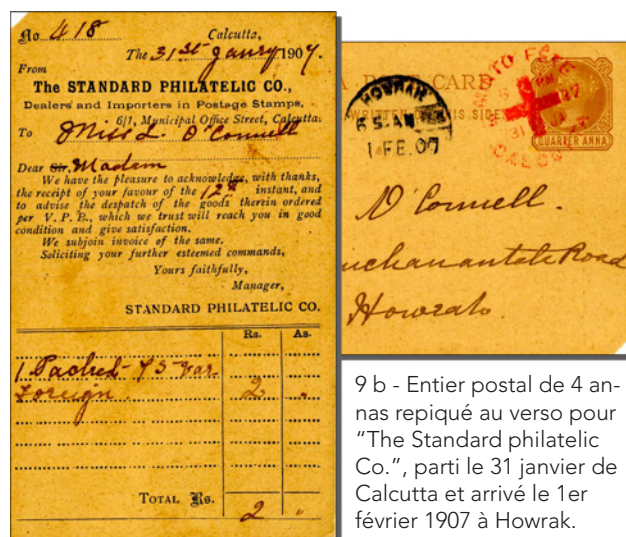 No 418 Calcutta,
The 31st Janry 1907.
From
The STANDARD PHILATELIC CO.,
Dealers and Importers in Postage Stamps,
6/1, Municipal Office Street, Calcutta.
To Miss L. O'Connell
Dear Sir, Madam
We have the pleasure to acknowledge, with thanks,
the receipt of your favour of the 12th instant, and
to advise the despatch of the goods therein ordered
per V. P. P., which we trust will reach you in good
condition and give satisfaction.
We subjoin invoice of the same.
Soliciting your further esteemed commands,
Yours faithfully,
Manager,
STANDARD PHILATELIC CO.
Rs. As.
1 Packet 75 var
Foreign 2 "
TOTAL Rs. 2 "
CARD
THIS SIDE
QUARTER ANNA
HOWRAH
5 AM
1 FE. 07
TO FETE
PM
31
O'Connell.
Road
Howrah.
9 b - Entier postal de 4 an-
nas repiqué au verso pour
“The Standard philatelic
Co.”, parti le 31 janvier de
Calcutta et arrivé le 1er
février 1907 à Howrak.